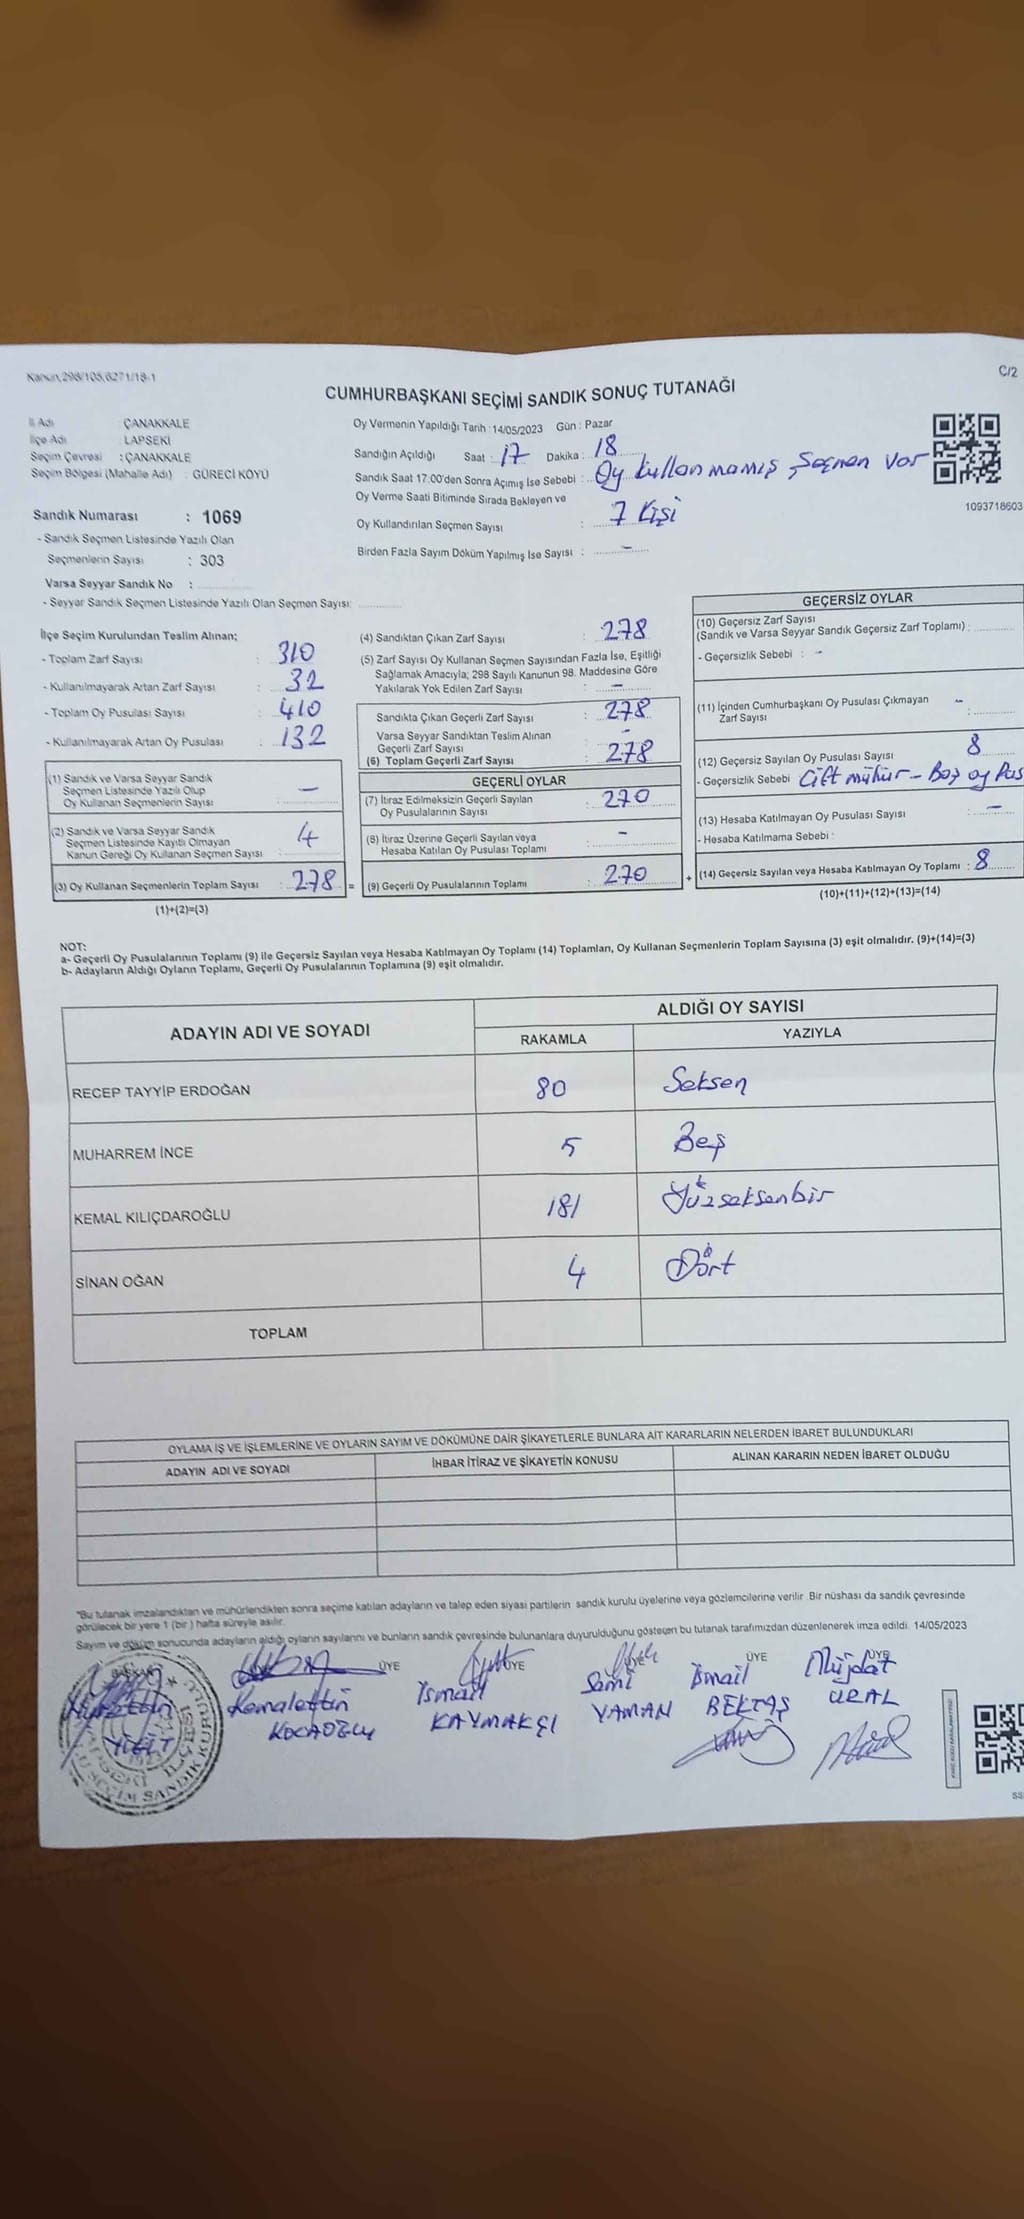 Kanun,298/105,6271/18-1
C/2
CUMHURBAŞKANI SEÇİMİ SANDIK SONUÇ TUTANAĞI
İl Adı ÇANAKKALE
İlçe Adı : LAPSEKİ
Seçim Çevresi : ÇANAKKALE
Seçim Bölgesi (Mahalle Adı) : GÜRECİ KÖYÜ
Sandık Numarası : 1069
- Sandık Seçmen Listesinde Yazılı Olan
Seçmenlerin Sayısı : 303
Varsa Seyyar Sandık No :
- Seyyar Sandık Seçmen Listesinde Yazılı Olan Seçmen Sayısı:
Oy Vermenin Yapıldığı Tarih :14/05/2023 Gün : Pazar
Sandığın Açıldığı Saat : 17 Dakika : 18
Sandık Saat 17:00'den Sonra Açımış İse Sebebi : Oy kullanmamış Seçmen var
Oy Verme Saati Bitiminde Sırada Bekleyen ve
Oy Kullandırılan Seçmen Sayısı : 7 Kişi
Birden Fazla Sayım Döküm Yapılmış İse Sayısı : -
1093718603
İlçe Seçim Kurulundan Teslim Alınan;
- Toplam Zarf Sayısı : 310
- Kullanılmayarak Artan Zarf Sayısı : 32
- Toplam Oy Pusulası Sayısı : 410
- Kullanılmayarak Artan Oy Pusulası : 132
(1) Sandık ve Varsa Seyyar Sandık
Seçmen Listesinde Yazılı Olup
Oy Kullanan Seçmenlerin Sayısı : -
(2) Sandık ve Varsa Seyyar Sandık
Seçmen Listesinde Kayıtlı Olmayan
Kanun Gereği Oy Kullanan Seçmen Sayısı : 4
(3) Oy Kullanan Seçmenlerin Toplam Sayısı : 278 =
(1)+(2)=(3)
(4) Sandıktan Çıkan Zarf Sayısı : 278
(5) Zarf Sayısı Oy Kullanan Seçmen Sayısından Fazla İse, Eşitliği
Sağlamak Amacıyla; 298 Sayılı Kanunun 98. Maddesine Göre
Yakılarak Yok Edilen Zarf Sayısı : -
Sandıkta Çıkan Geçerli Zarf Sayısı : 278
Varsa Seyyar Sandıktan Teslim Alınan
Geçerli Zarf Sayısı : -
(6) Toplam Geçerli Zarf Sayısı : 278
GEÇERLİ OYLAR
(7) İtiraz Edilmeksizin Geçerli Sayılan
Oy Pusulalarının Sayısı : 270
(8) İtiraz Üzerine Geçerli Sayılan veya
Hesaba Katılan Oy Pusulası Toplamı : -
(9) Geçerli Oy Pusulalarının Toplamı : 270 +
GEÇERSİZ OYLAR
(10) Geçersiz Zarf Sayısı
(Sandık ve Varsa Seyyar Sandık Geçersiz Zarf Toplamı) :
- Geçersizlik Sebebi : -
(11) İçinden Cumhurbaşkanı Oy Pusulası Çıkmayan
Zarf Sayısı : -
(12) Geçersiz Sayılan Oy Pusulası Sayısı 8
- Geçersizlik Sebebi Çift mühür - Boş oy Pus
(13) Hesaba Katılmayan Oy Pusulası Sayısı : -
- Hesaba Katılmama Sebebi :
(14) Geçersiz Sayılan veya Hesaba Katılmayan Oy Toplamı : 8
(10)+(11)+(12)+(13)=(14)
NOT:
a- Geçerli Oy Pusulalarının Toplamı (9) ile Geçersiz Sayılan veya Hesaba Katılmayan Oy Toplamı (14) Toplamları, Oy Kullanan Seçmenlerin Toplam Sayısına (3) eşit olmalıdır. (9)+(14)=(3)
b- Adayların Aldığı Oyların Toplamı, Geçerli Oy Pusulalarının Toplamına (9) eşit olmalıdır.
ADAYIN ADI VE SOYADI
ALDIĞI OY SAYISI
RAKAMLA YAZIYLA
RECEP TAYYİP ERDOĞAN 80 Seksen
MUHARREM İNCE 5 Beş
KEMAL KILIÇDAROĞLU 181 Yüzseksenbir
SİNAN OĞAN 4 Dört
TOPLAM
OYLAMA İŞ VE İŞLEMLERİNE VE OYLARIN SAYIM VE DÖKÜMÜNE DAİR ŞİKAYETLERLE BUNLARA AİT KARARLARIN NELERDEN İBARET BULUNDUKLARI
ADAYIN ADI VE SOYADI İHBAR İTİRAZ VE ŞİKAYETİN KONUSU ALINAN KARARIN NEDEN İBARET OLDUĞU
"Bu tutanak imzalandıktan ve mühürlendikten sonra seçime katılan adayların ve talep eden siyasi partilerin sandık kurulu üyelerine veya gözlemcilerine verilir. Bir nüshası da sandık çevresinde
görülecek bir yere 1 (bir) hafta süreyle asılır.
Sayım ve döküm sonucunda adayların aldığı oyların sayılarını ve bunların sandık çevresinde bulunanlara duyurulduğunu gösteren bu tutanak tarafımızdan düzenlenerek imza edildi. 14/05/2023
BAŞKAN ÜYE ÜYE ÜYE ÜYE ÜYE
Nurettin Kemalettin İsmail Sami İsmail Müjdat
YİĞİT KOCAOĞLU KAYMAKÇI YAMAN BEKTAŞ URAL